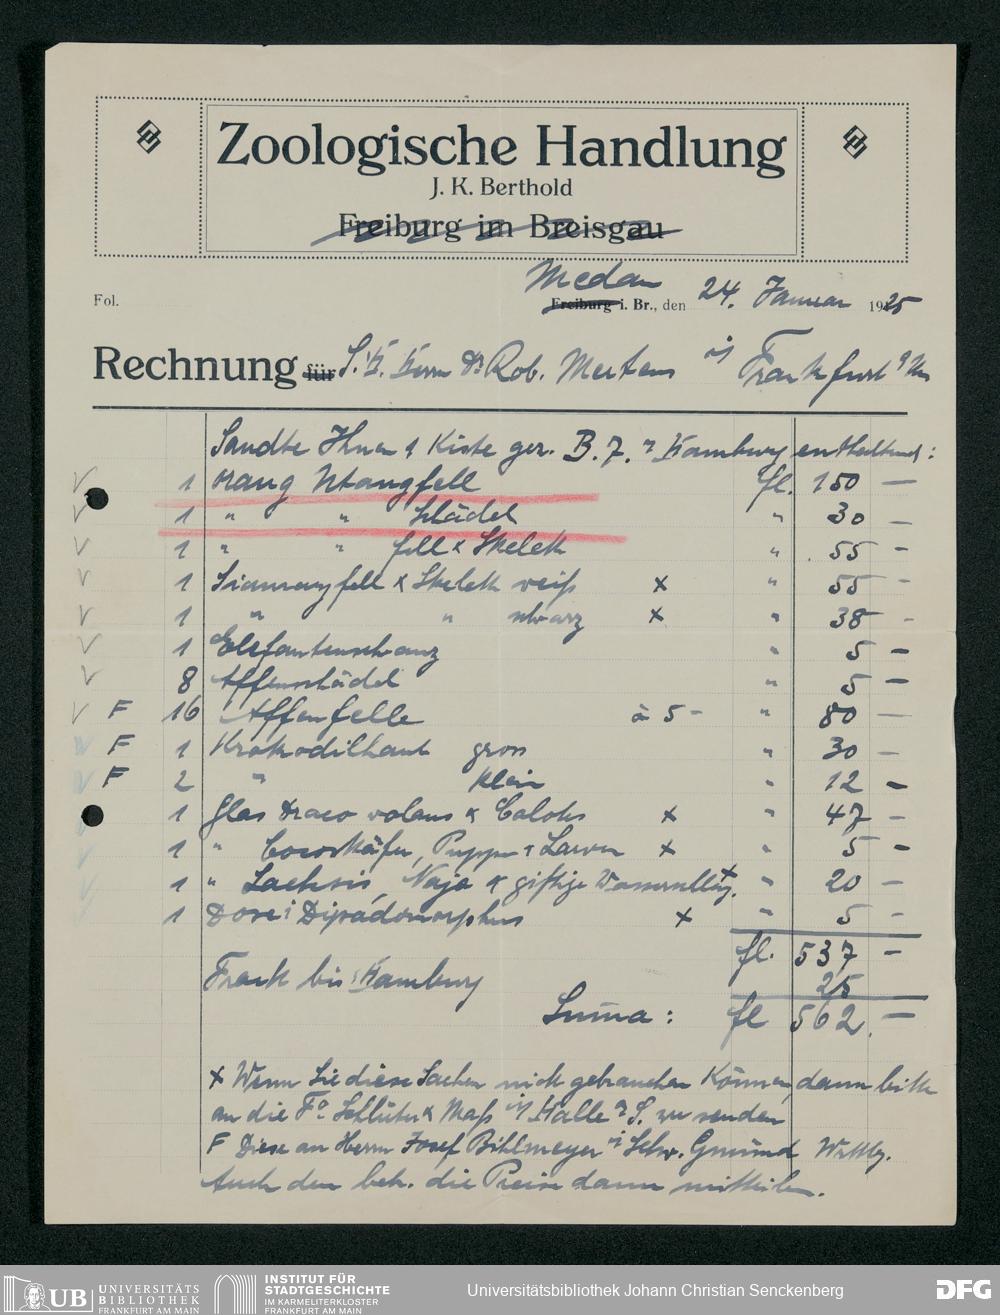 Zoologische Handlung
J. K. Berthold
Freiburg im Breisgau
Medan
Fol. Freiburg i. Br., den 24. Januar 1925
Rechnung für S. H. Herrn Dr Rob. Mertens i/ Frankfurt a/M
Sandte Ihnen 1 Kiste gez. B. 7. n Hamburg enthaltend:
1 Orang Utangfell fl. 150 —
1 " " Schädel " 30 —
1 " " fell & Skelett " 55 —
1 Siamangfell & Skelett weiß x " 55 —
1 " " schwarz x " 38 -
1 Elefantenschwanz " 5 —
8 Affenschädel " 5 —
F 16 Affenfelle à 5 - " 80 —
F 1 Krokodilhaut gross " 30 —
F 2 " klein " 12 —
1 Glas Draco volans & Calotes x " 47 —
1 " Cocoskäfer, Puppe & Larven x " 5 —
1 " Lachsis, Naja & giftige Wasserschlg. x " 20 —
1 Dose: x " 5 —
fl. 537 —
Fracht bis Hamburg 25
Suma: fl 562. —
x Wenn Sie diese Sachen nicht gebrauchen können, dann bitte
an die Fa. Schlüter & Mass i/ Halle a. S. zu senden
F Diese an Herrn Josef Bihlmeyer i/ Schw. Gmünd Wrttbg.
Auch dem betr. die Preise dann mitteilen.
UB UNIVERSITÄTS
BIBLIOTHEK
FRANKFURT AM MAIN
INSTITUT FÜR
STADTGESCHICHTE
IM KARMELITERKLOSTER
FRANKFURT AM MAIN
Universitätsbibliothek Johann Christian Senckenberg
DFG